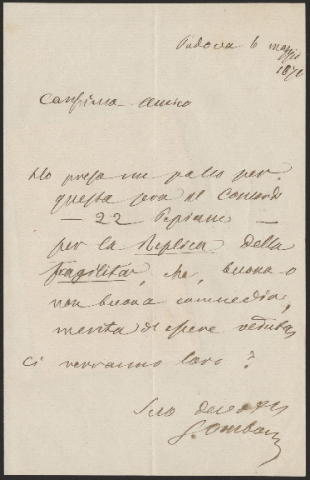 Padova 6 maggio
187
Carissimo Amico
Ho preso un palco per
questa sera al Concordi
— 22 Pepiano —
per la Replica della
fragilità, che, buona o
non buona commedia,
merita di essere veduta.
Ci verranno loro?
Suo